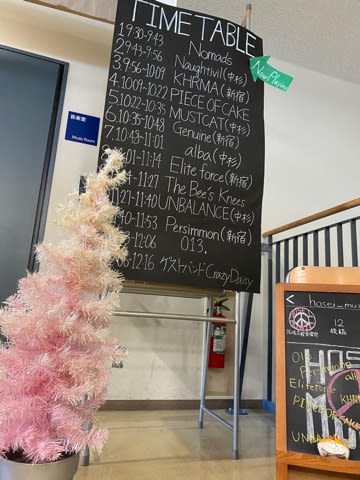 TIME TABLE
1 9:30-9:43 Nomads
2 9:43-9:56 Naughtivil(中杉)
3 9:56-10:09 KHRMA(新宿)
4 10:09-10:22 PIECE OF CAKE
5 10:22-10:35 MUSTCAT(中杉)
6 10:35-10:48 Genuine(新宿)
7 10:48-11:01 alba(中杉)
:01-11:14 Elite force(新宿)
:14-11:27 The Bee's Knees
11:27-11:40 UNBALANCE(中杉)
:40-11:53 Persimmon(新宿)
-12:06 013.
:06-12:16 ゲストバンド Crazy Daisy
Now Playing
音楽室
Music Room
< hosei_mus
12
投稿
HOS
013
Persimmon
alb
Eliteforce
KHR
PIECE OF CAKE
UNBA